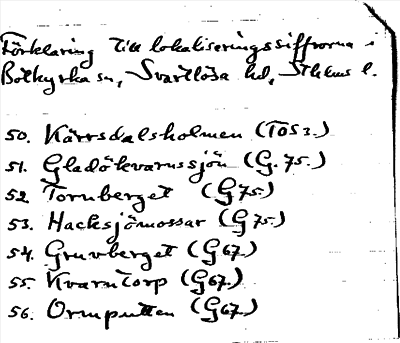 Förklaring till lokaliseringssiffrorna i
Botkyrka sn, Svartlösa hd, Sthlms l.
50. Kärrsdalsholmen (TÖS 3.)
51. Gladökvarnssjön (G. 75.)
52. Tornberget (G 75.)
53. Hacksjömossar (G 75.)
54. Gruvberget (G 67.)
55. Kvarntorp (G 67.)
56. Ormputten (G 67.)